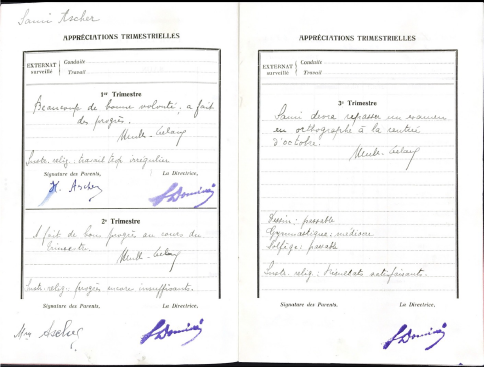 Sami Ascher
APPRÉCIATIONS TRIMESTRIELLES
EXTERNAT surveillé
Conduite
Travail
1er Trimestre
Beaucoup de bonne volonté, a fait
des progrès.
Inst. relig: travail trop irrégulier
Signature des Parents, La Directrice,
H. Ascher
2e Trimestre
A fait de bons progrès au cours du
trimestre.
Inst. relig: progrès encore insuffisants.
Signature des Parents, La Directrice,
Ascher
APPRÉCIATIONS TRIMESTRIELLES
EXTERNAT surveillé
Conduite
Travail
3e Trimestre
Sami devra repasser un examen
en orthographe à la rentrée
d'octobre.
Dessin: passable
Gymnastique: médiocre
Solfège: passable
Inst. relig: Résultats satisfaisants.
Signature des Parents, La Directrice,